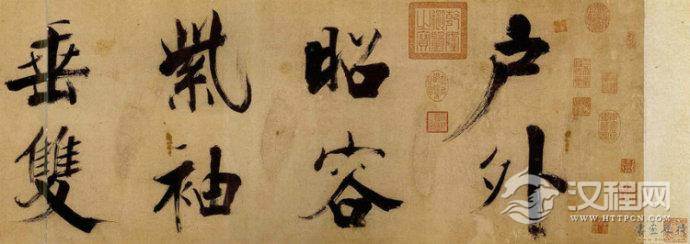 户外
昭容
紫袖
垂雙
汉程网
HTTPCN.COM